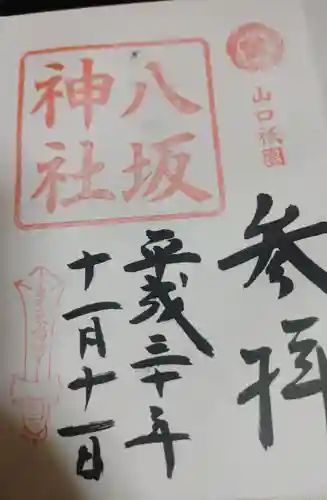 山口祇園
八坂
神社
参拝
平成三十年
十一月十一日